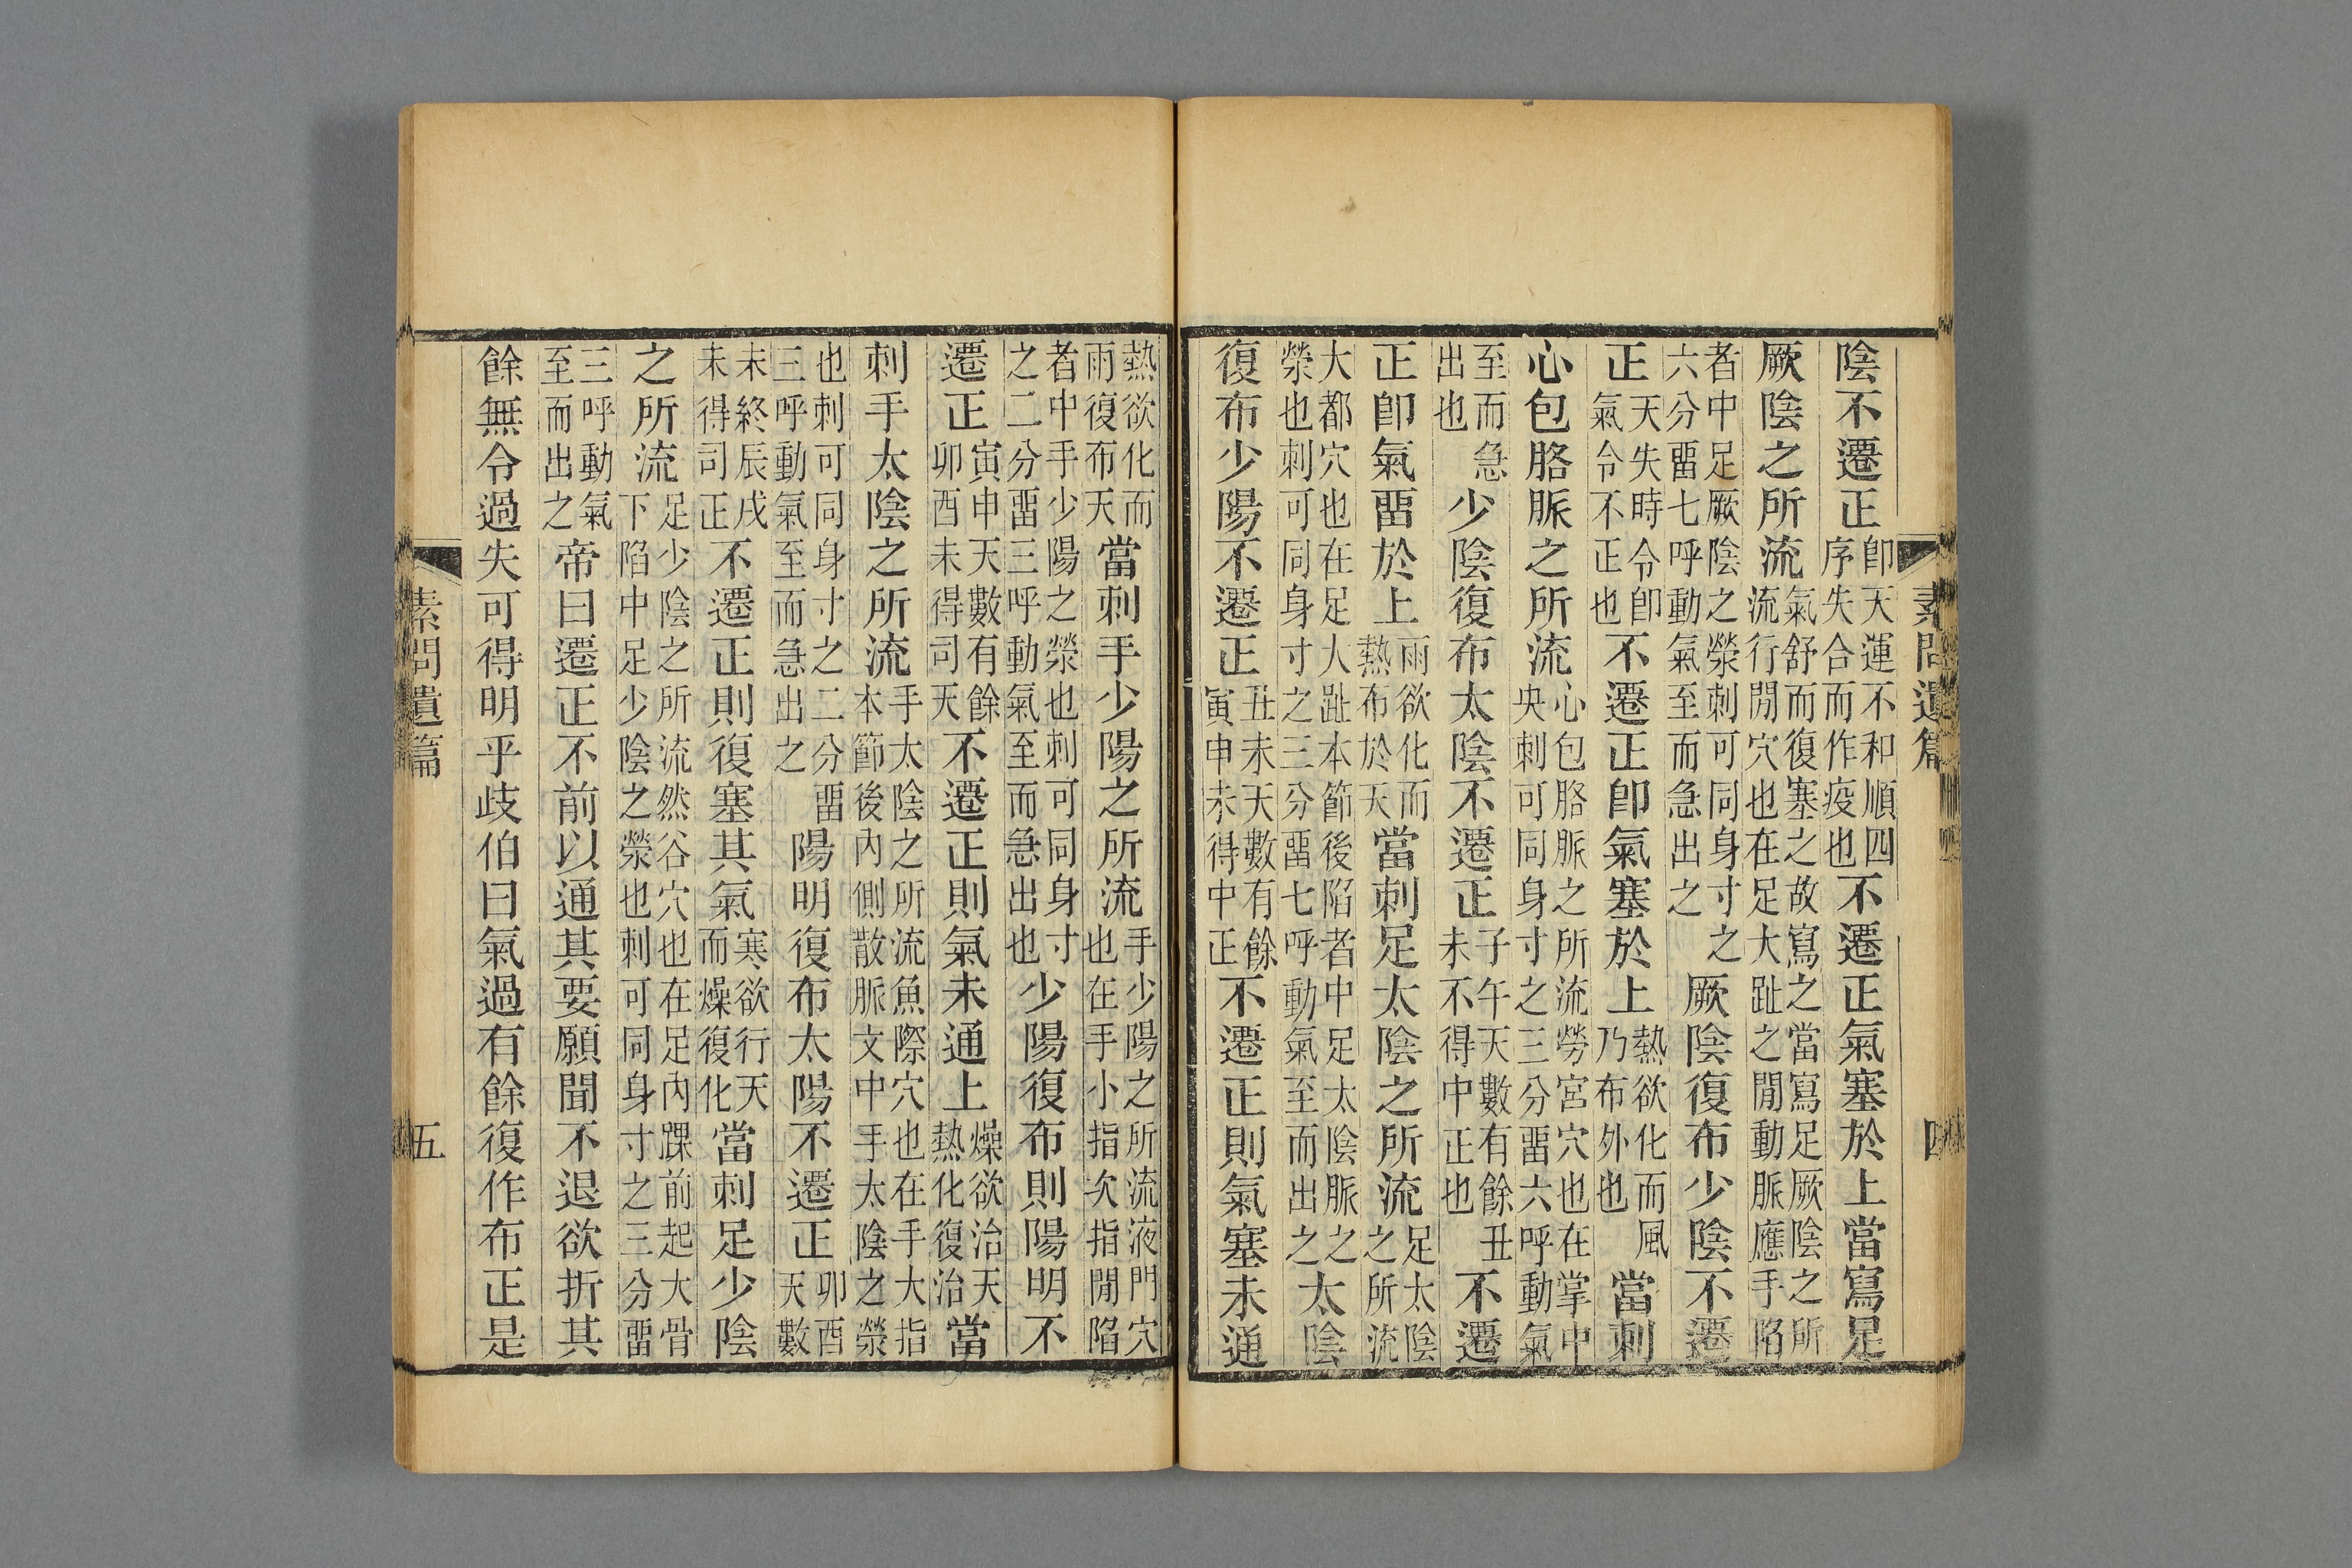 素問遺篇 四
陰不遷正卽天運不和順四序失合而作疫也不遷正氣塞於上當寫足
厥陰之所流氣舒而復塞之故寫之當寫足厥陰之所流行閒穴也在足大趾之閒動脈應手陷
者中足厥陰之滎刺可同身寸之六分畱七呼動氣至而急出之厥陰復布少陰不遷
正天失時令卽氣令不正也不遷正卽氣塞於上熱欲化而風乃布外也當刺
心包胳脈之所流心包胳脈之所流勞宮穴也在掌中央刺可同身寸之三分畱六呼動氣
至而急出也少陰復布太陰不遷正子午天數有餘丑未不得中正也不遷
正卽氣畱於上雨欲化而熱布於天當刺足太陰之所流足太陰之所流
大都穴也在足大趾本節後陷者中足太陰脈之滎也刺可同身寸之三分畱七呼動氣至而出之太陰
復布少陽不遷正丑未天數有餘寅申未得中正不遷正則氣塞未通
熱欲化而雨復布天當刺手少陽之所流手少陽之所流液門穴也在手小指次指閒陷
者中手少陽之滎也刺可同身寸之二分畱三呼動氣至而急出也少陽復布則陽明不
遷正寅申天數有餘卯酉未得司天不遷正則氣未通上燥欲治天熱化復治當
刺手太陰之所流手太陰之所流魚際穴也在手大指本節後內側散脈文中手太陰之滎
也刺可同身寸之二分畱三呼動氣至而急出之陽明復布太陽不遷正卯酉天數
未終辰戌未得司正不遷正則復塞其氣寒欲行天而燥復化當刺足少陰
之所流足少陰之所流然谷穴也在足內踝前起大骨下陷中足少陰之滎也刺可同身寸之三分畱
三呼動氣至而出之帝曰遷正不前以通其要願聞不退欲折其
餘無令過失可得明乎歧伯曰氣過有餘復作布正是
素問遺篇 五